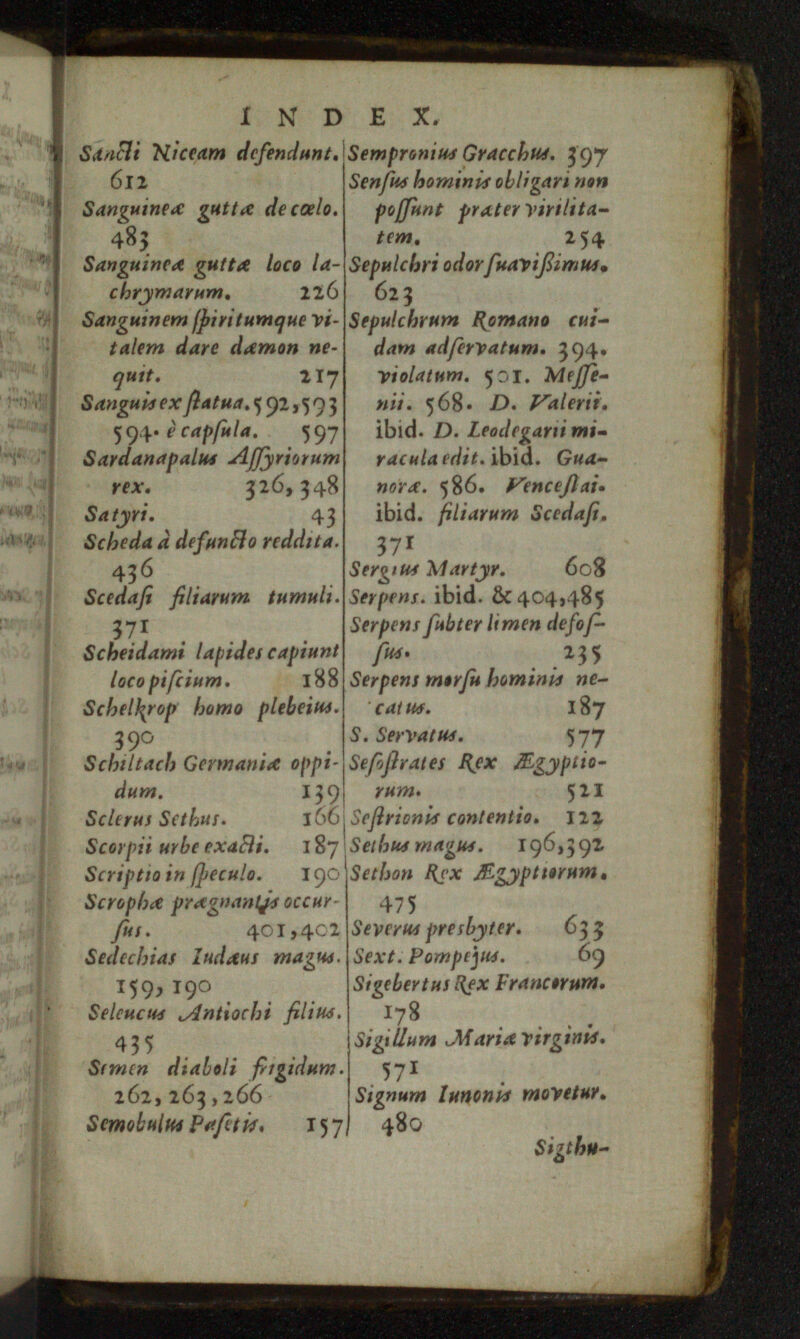 INDEX.
Sancti Niceam defendunt.
612
Sanguineæ guttæ de cœlo.
483
Sanguineæ guttæ loco la-
chrymarum. 226
Sanguinem ſpiritumque vi-
talem dare dæmon ne-
quit. 217
Sanguis ex ſtatua. 592,593
594. è capſula. 597
Sardanapalus Aſſyriorum
rex. 326, 348
Satyri. 43
Scheda à defuncto reddita.
436
Scedaſi filiarum tumuli.
371
Scheidami lapides capiunt
loco piſcium. 188
Schelkrop homo plebeius.
390
Schiltach Germaniæ oppi-
dum. 139
Sclerus Sethus. 166
Scorpii urbe exacti. 187
Scriptio in ſpeculo. 190
Scrophæ prægnantis occur-
ſus. 401,402
Sedechias Iudæus magus.
159, 190
Seleucus Antiochi filius.
435
Semen diaboli frigidum.
262, 263, 266
Semobulus Paſetis. 157
Sempronius Gracchus. 397
Senſus hominis obligari non
poſſunt præter virilita-
tem. 254
Sepulchri odor ſuaviſſimus.
623
Sepulchrum Romano cui-
dam adſervatum. 394.
violatum. 501. Meſſe-
nii. 568. D. Valerii.
ibid. D. Leodegarii mi-
racula edit. ibid. Gua-
noræ. 586. Venceſlai.
ibid. filiarum Scedaſi.
371
Sergius Martyr. 608
Serpens. ibid. & 404,485
Serpens ſubter limen defoſ-
ſus. 235
Serpens morſu hominis ne-
catus. 187
S. Servatus. 577
Seſoſtrates Rex Ægyptio-
rum. 521
Seſtrionis contentio. 122
Sethus magus. 196,392
Sethon Rex Ægyptiorum.
475
Severus presbyter. 633
Sext. Pompejus. 69
Sigebertus Rex Francorum.
178
Sigillum Mariæ virginis.
571
Signum Iunonis movetur.
480
Sigthu-